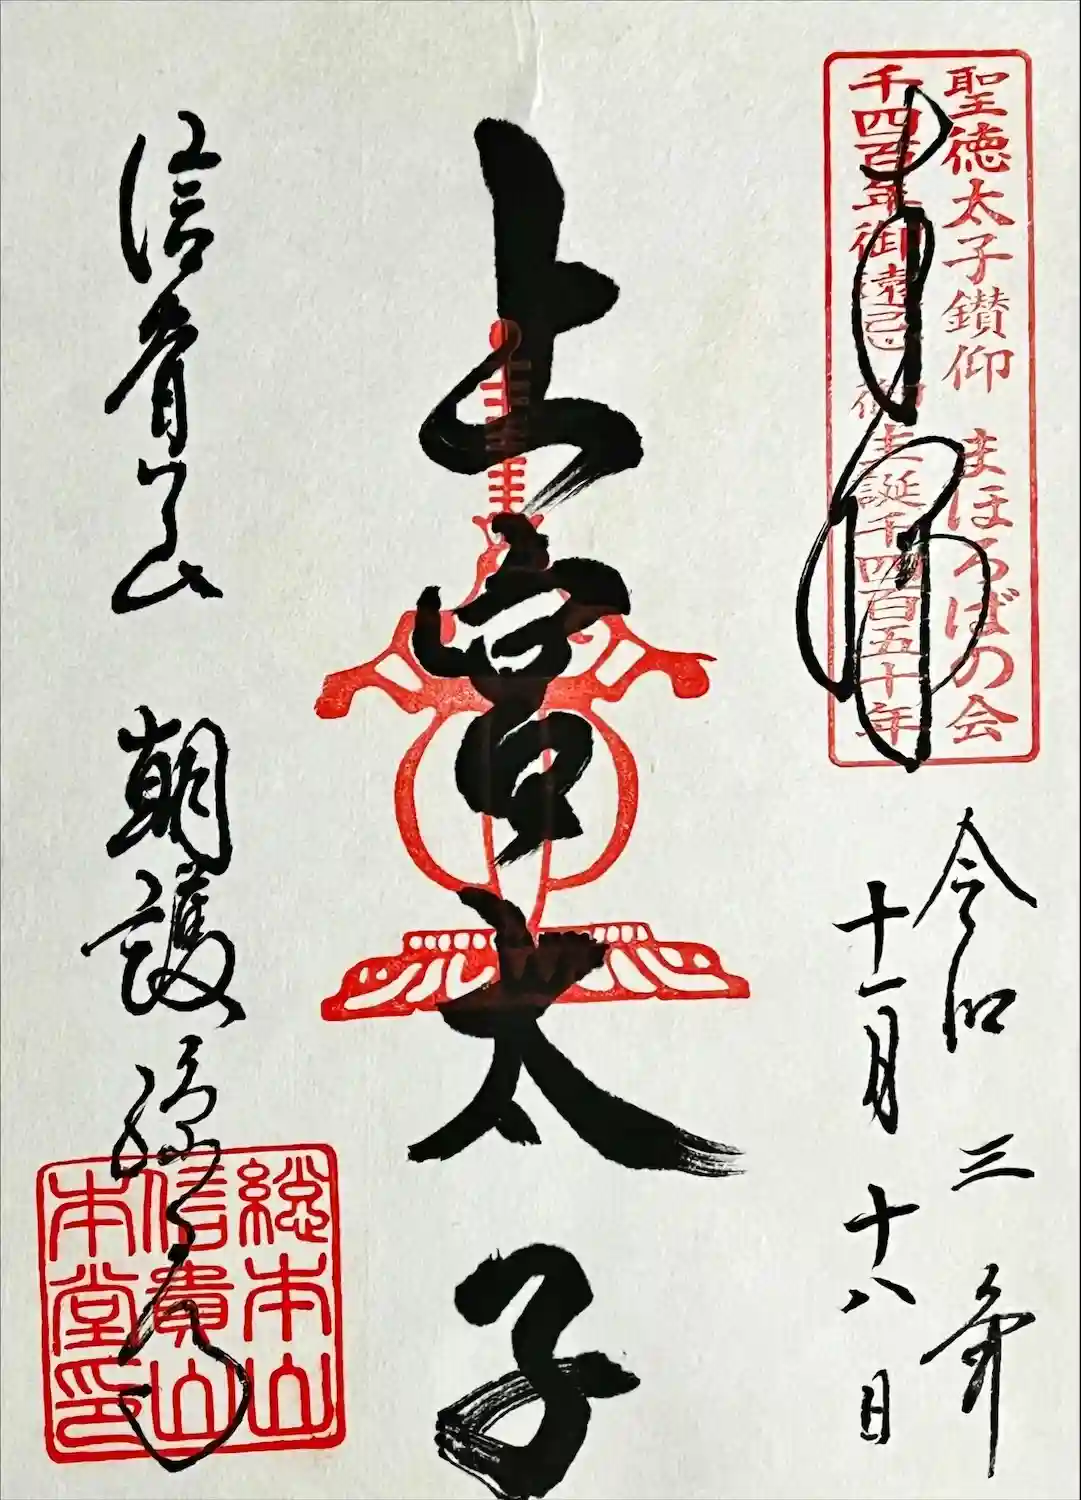 奉拝
聖徳太子鑚仰　まほろばの会
千四百年御遠忌　御生誕千四百五十年
令和三年
十一月十八日
上宮太子
信貴山　朝護孫子寺
総本山
信貴山
本堂印